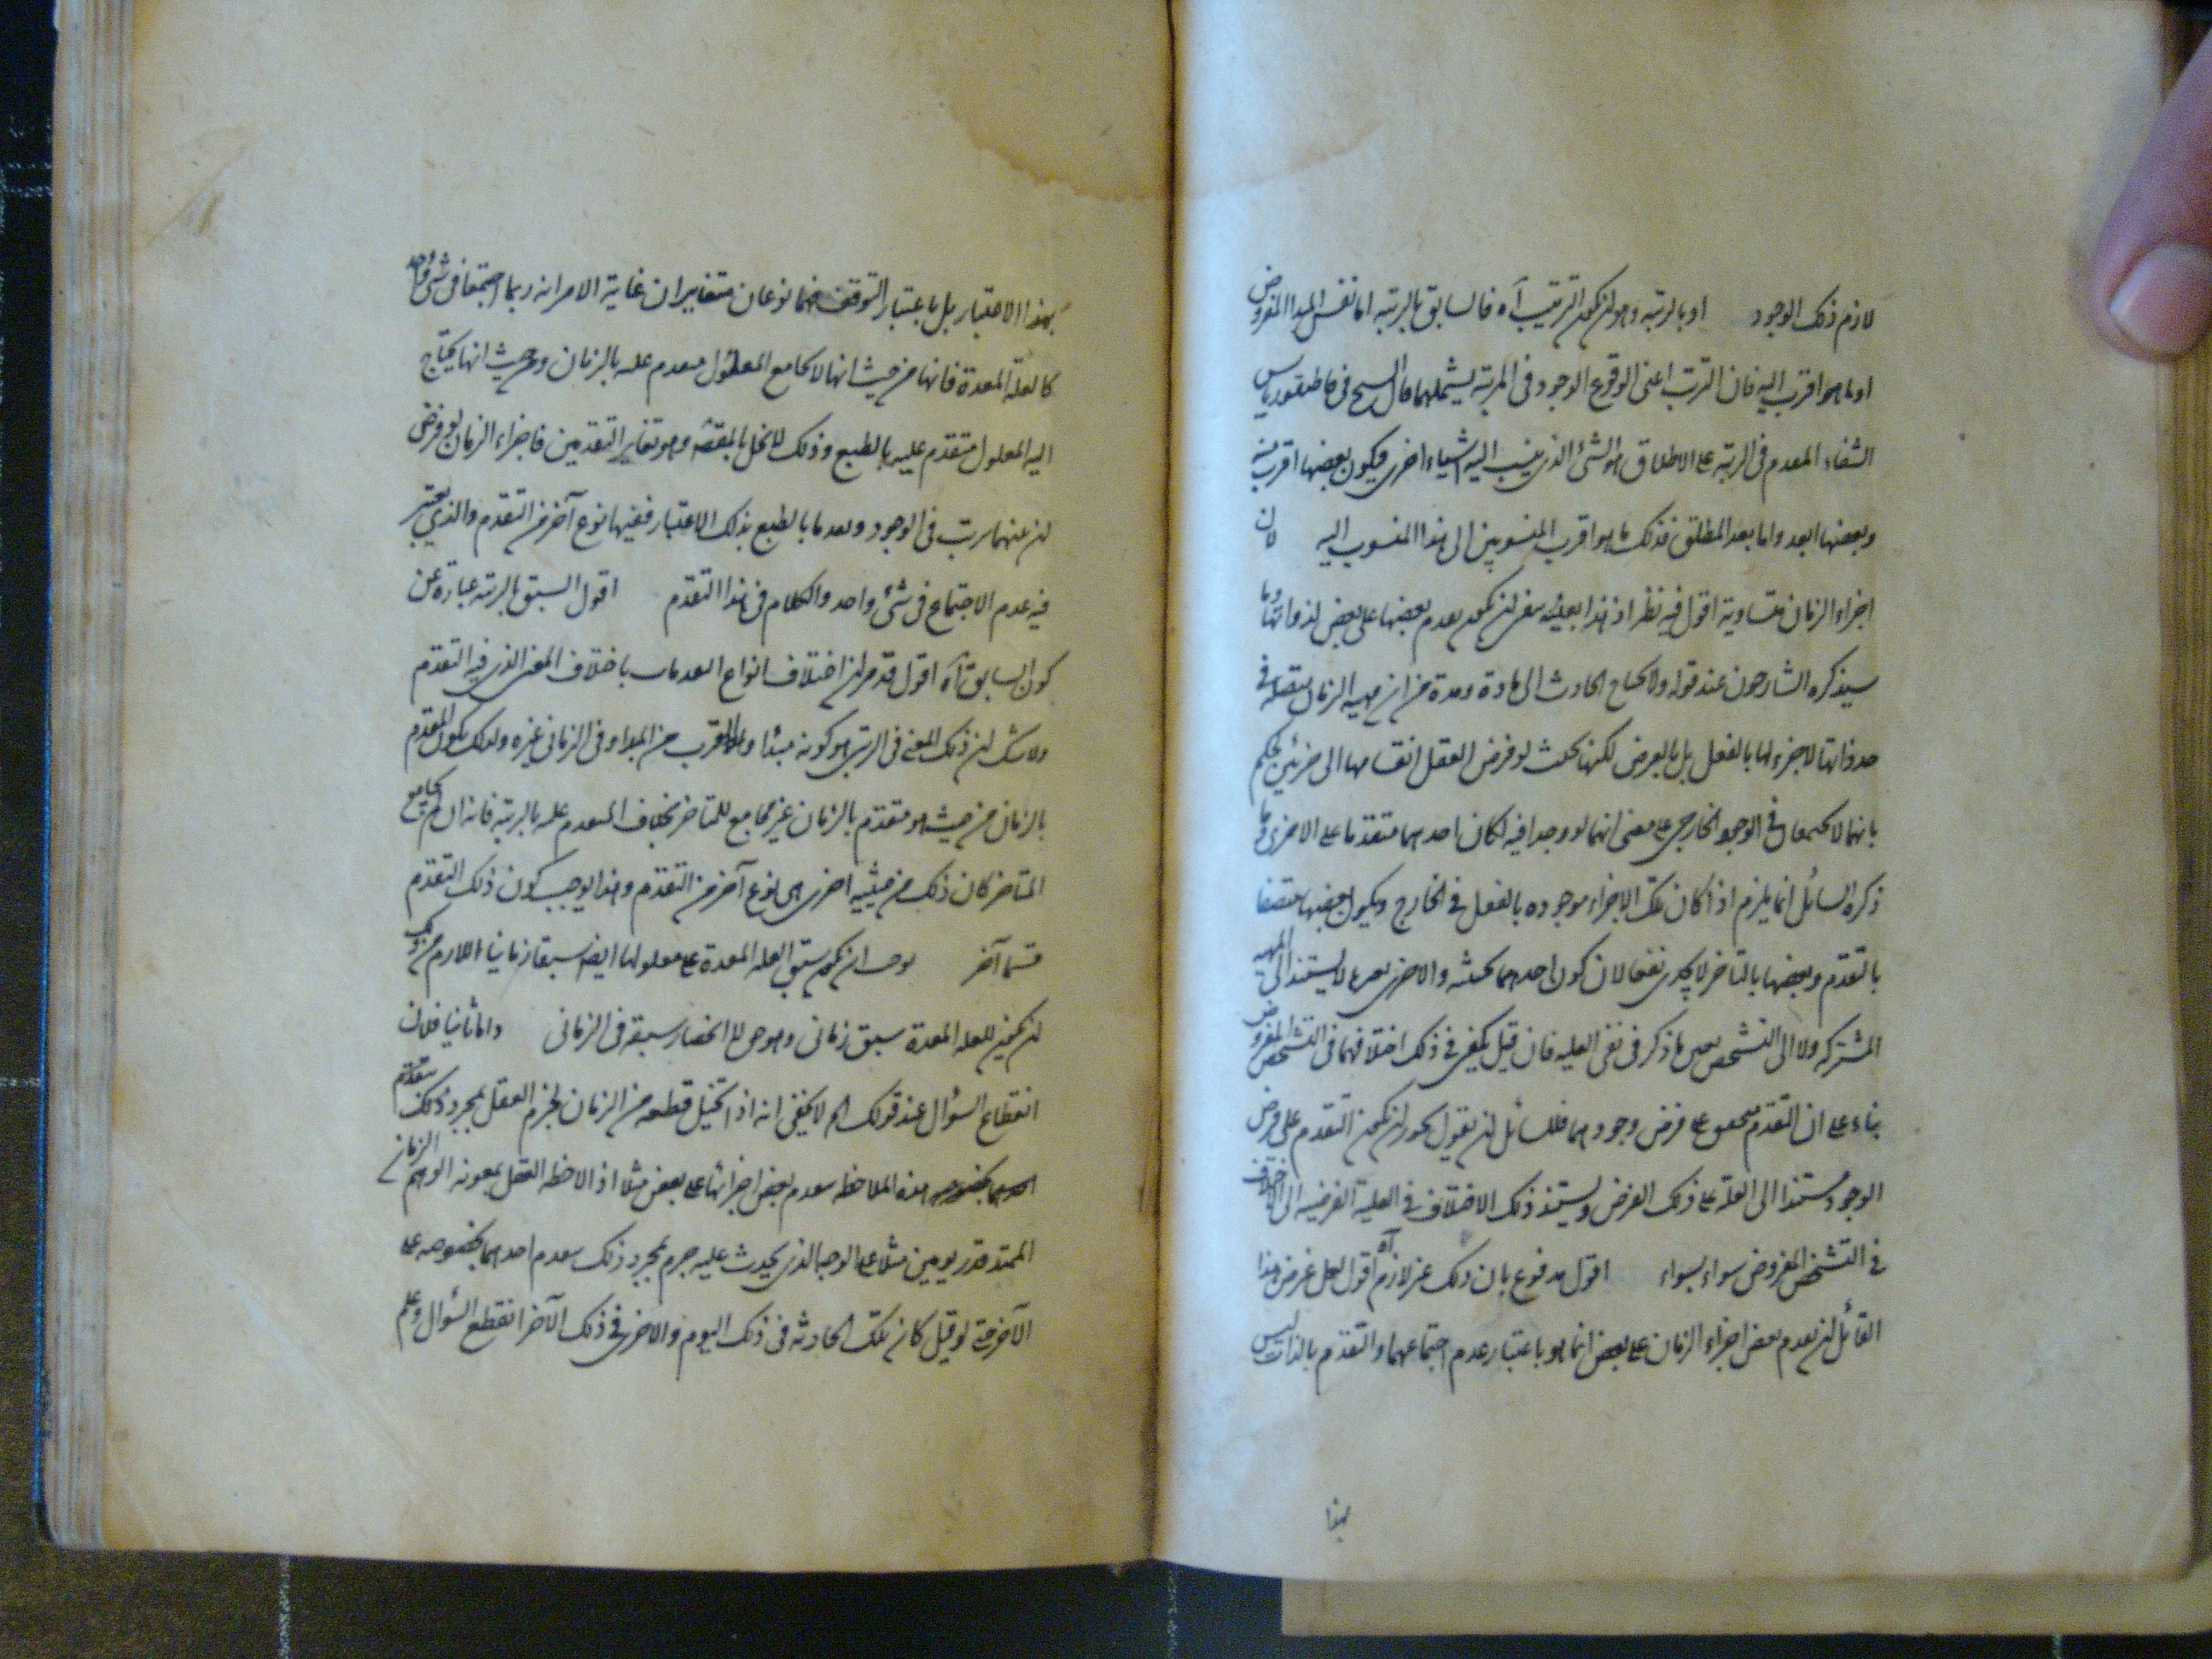 لازم ذلك الوجود او بالرتبه وهو ان يكون الترتيب آه فالسابق بالرتبه اما نفس المبدا المفروض
او ما هو اقرب اليه فان الترتب اعنى الوقوع الوجود فى المرتبه يشملهما قال الشيخ فى قاطيغورياس
الشفاء المتقدم فى الرتبه على الاطلاق هو الشئ الذى ينسب اليه اشياء اخرى فيكون بعضها اقرب منه
وبعضها ابعد واما بعد المطلق فذلك ما هو اقرب المنسوبين الى هذا المنسوب اليه لان
اجزاء الزمان متساوية اقول فيه نظر اذ هذا بعينه ان يكون تقدم بعضها على بعض لذواتها وما
سيذكره الشارحون عند قوله ولا يحتاج الحادث الى مادة ومدة من ان مهيه الزمان متصله فى
حد ذاتها لا جزء لها بالفعل بل بالعرض لكنها بحيث لو فرض العقل انقسامها الى جزئين يحكم
بانهما لا يجتمعان فى الوجود الخارجى على معنى انهما لو وجدا فيه لكان احدهما متقدما على الاخرى وما
ذكره السائل انما يلزم اذا كان تلك الاجزاء موجوده بالفعل فى الخارج ويكون بعضها متصفا
بالتقدم وبعضها بالتاخر لا يجدى نفعا لان كون احدهما بحيثيه والاخرى لا يستند الى المهيه
المشتركه ولا الى التشخص بعين ما ذكر فى نفى العليه فان قيل يكفى فى ذلك اختلافهما فى التشخص المفروض
بناء على ان التقدم متحقق على فرض وجودهما فللسائل ان يقول يجوز ان يكون التقدم على فرض
الوجود مستندا الى العلة على ذلك الفرض ويستند ذلك الاختلاف فى العليه الفرضيه الى الاختلاف
فى التشخص المفروض سواء بسواء اقول مدفوع بان ذلك غير لازم آه اقول لعل غرض هذا
القائل ان تقدم بعض اجزاء الزمان على بعض انما هو باعتبار عدم اجتماعهما والتقدم بالذات ليس
بهذا
بهذا الاعتبار بل باعتبار التوقف فهما نوعان متغايران غاية الامر انه ربما اجتمعا فى شئ واحد
كالعلة المعدة فانها من حيث انها لا تجامع المعلول متقدم عليه بالزمان ومن حيث انها يحتاج
اليه المعلول متقدم عليه بالطبع وذلك لا يخل بالمقصد وهو تغاير التقدمين فاجزاء الزمان لو فرض
ان بينهما ترتب فى الوجود وتقدما بالطبع بذلك الاعتبار ففيها نوع آخر من التقدم والذى يعتبر
فيه عدم الاجتماع فى شئ واحد والكلام فى هذا التقدم اقول السبق بالرتبه عبارة عن
كون السابق آه اقول قد مر ان اختلاف انواع التقدمات باختلاف المعنى الذى فيه التقدم
ولا شك ان ذلك المعنى فى الرتبى هو كونه مبدئا او القرب من المبدا وفى الزمانى غيره ولذلك يكون المتقدم
بالزمان من حيث هو متقدم بالزمان غير مجامع للمتاخر بخلاف المتقدم عليه بالرتبه فانه ان لم يجامع
المتاخر كان ذلك من حيثيه اخرى هى نوع آخر من التقدم وهذا يوجب كون ذلك التقدم
قسما آخر يوجب ان يكون سبق العله المعدة على معلولها ايضا سبقا زمانيا اللازم من ذلك
ان يكون للعله المعدة سبق زمانى وهو حق لا انحصار سبقه فى الزمانى واما ثانيا فلان
انقطاع السؤال عند قولك الخ لا يخفى انه اذا تخيل قطعه من الزمان يجزم العقل بمجرد ذلك بتقدم
احدهما بخصوصه هذه الملاحظه بتقدم بعض اجزائها على بعض مثلا اذا لاحظ العقل بمعونه الوهم الزمان
الممتد قدر يومين مثلا على الوجه الذى يحدث عليه جزم بمجرد ذلك بتقدم احدهما بخصوصه على
الآخر حتى لو قيل كانت تلك الحادثه فى ذلك اليوم والاخرى فى ذلك الآخر انقطع السؤال وعلم